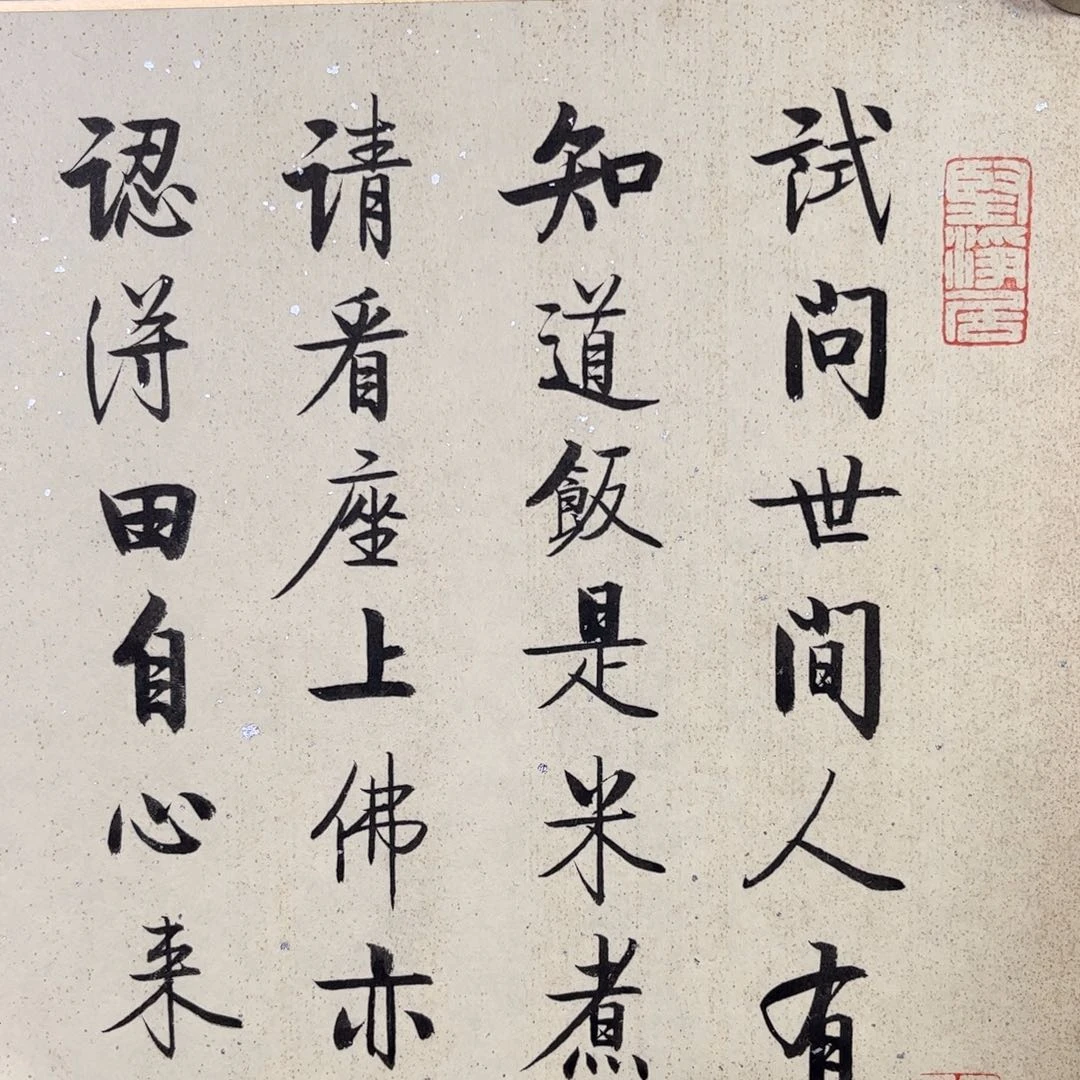 試問世間人有
知道飯是米煮
請看座上佛亦
認得田自心来